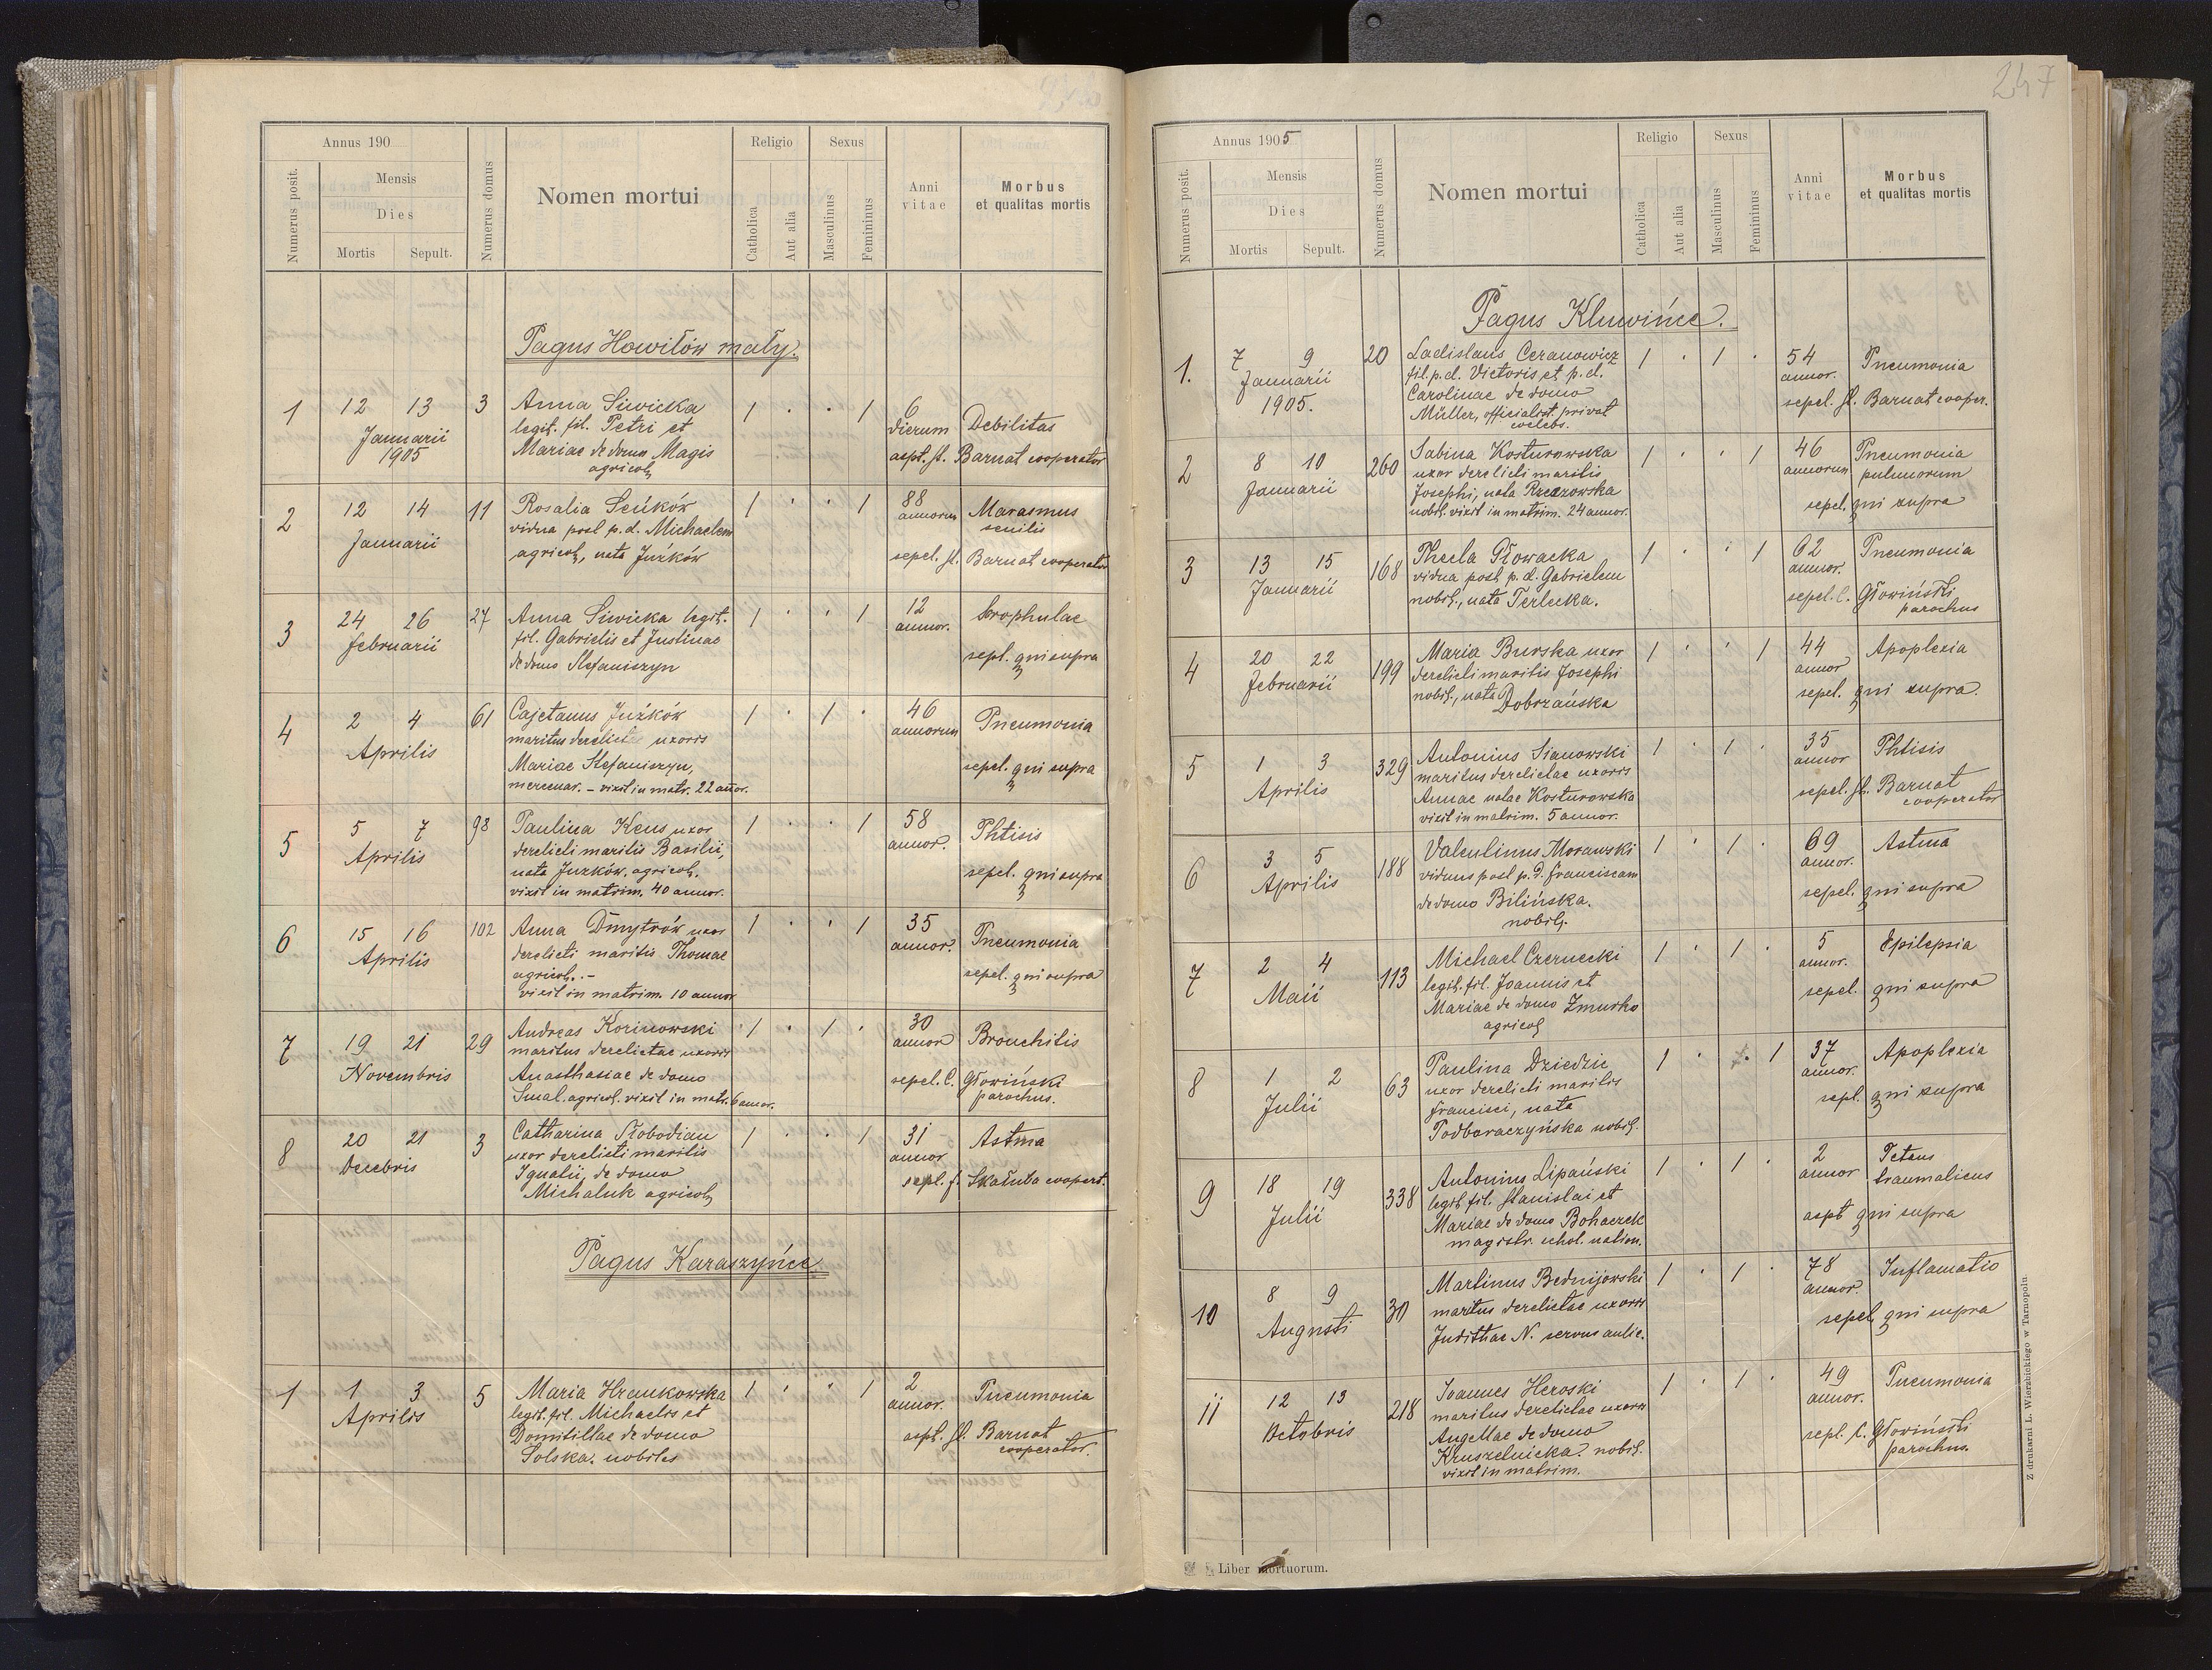 247
Annus 190
Numerus posit.
Mensis
Dies
Mortis Sepult.
Numerus domus
Nomen mortui
Religio
Catholica
Aut alia
Sexus
Masculinus
Femininus
Anni
vitae
Morbus
et qualitas mortis
Pagus Howilów mały.
1 12 13 3 Anna Siwicka 1 . . 1 6
Januarii legit. fil. Petri et dierum Debilitas
1905 Mariae de domo Magis aspt. st. Barnat cooperator
agricol.
2 12 14 11 Rosalia Seńków 1 . . 1 88 Marasmus
Januarii vidua post p. d. Michaelem annorum senilis
agricol., nata Juźków sepel. st. Barnat cooperator
3 24 26 27 Anna Siwicka legit. 1 . . 1 12 Scrophulae
februarii fil. Gabrielis et Justinae annor.
de domo Stefaniszyn sepl. qui supra
4 2 4 61 Cajetanus Juźków 1 . 1 . 46 Pneumonia
Aprilis maritus derelictae uxoris annorum
Mariae Stefaniszyn, sepel. qui supra
mercenar. – vixit in matr. 22 annor.
5 5 7 98 Paulina Kens uxor 1 . . 1 58 Phtisis
Aprilis derelicti maritis Basilii, annor.
nata Juzków, agricol. sepel. qui supra
vixit in matrim. 40 annor.
6 15 16 102 Anna Dmytrów uxor 1 . . 1 35 Pneumonia
Aprilis derelicti maritis Thomae annor.
agricol. – sepel. qui supra
vixit in matrim. 10 annor
7 19 21 29 Andreas Korinowski 1 . 1 . 30 Bronchitis
Novembris maritus derelictae uxoris annor
Anasthasiae de domo sepel. C. Głowiński
Smal. agricol. vixit in matr. 6 annor. parochus.
8 20 21 3 Catharina Słobodian 1 . . 1 31 Astma
Decebris uxor derelicti maritis annor
Ignatii, de domo sepl. f. Skałuba coopert.
Michaluk agricol.
Pagus Karaszyńce.
1 1 3 5 Maria Hrankowska 1 . . 1 2 Pneumonia
Aprilis legit. fil. Michaelis et annor.
Domitillae de domo aspt. st. Barnat
Solska. nobiles cooperator.
Annus 1905
Numerus posit.
Mensis
Dies
Mortis Sepult.
Numerus domus
Nomen mortui
Religio
Catholica
Aut alia
Sexus
Masculinus
Femininus
Anni
vitae
Morbus
et qualitas mortis
Pagus Kluwińce.
1. 7 9 20 Ladislaus Ceranowicz 1 . 1 . 54 Pneumonia
Januarii fil. p. d. Victoris et p. d. annor.
1905. Carolinae de domo sepel. st. Barnat cooper.
Müller, officialist. privat
coelebs.
2 8 10 260 Sabina Kosturowska 1 . . 1 46 Pneumonia
Januarii uxor derelicti maritis annorum pulmorum
Josephi, nata Rzeczowska sepel. qui supra
nobil. vixit in matrim. 24 annor.
3 13 15 168 Thecla Głowacka 1 . . 1 62 Pneumonia
Januarii vidua post p. d. Gabrielem annor.
nobil., nata Terlecka. sepel. C. Głowiński
parochus
4 20 22 199 Maria Burska uxor 1 . . 1 44 Apoplexia
Februarii derelicti maritis Josephi annor
nobil., nata sepel. qui supra.
Dobrzańska
5 1 3 329 Antonius Sianowski 1 . 1 . 35 Phtisis
Aprilis maritus derelictae uxoris annor
Annae natae Kosturowska sepel. st. Barnat
vixit in matrim. 5 annor. cooperator
6 3 5 188 Valentinus Morawski 1 . 1 . 69 Astma
Aprilis viduus post p. d. Franciscam annor.
de domo Bilińska. sepel. qui supra
nobil.
7 2 4 113 Michael Czernecki 1 . 1 . 5 Epilepsia
Maii legit. fil. Joannis et annor.
Mariae de domo Zmurko sepel. qui supra
agricol
8 1 2 63 Paulina Dziedzic 1 . . 1 37 Apoplexia
Julii uxor derelicti maritis annor.
Francisci, nata sepl. qui supra
Podhoraczyńska nobil.
9 18 19 338 Antonius Lipański 1 . 1 . 2 Tetaus
Julii legit. fil. Stanislai et annor traumaticus
Mariae de domo Bohaczek aspt qui supra
magistr. schol. nation.
10 8 9 30 Martinus Bednijowski 1 . 1 . 78 Inflamatio
Augusti maritus derelictae uxoris annor.
Judithae N. servus aulic. sepel. qui supra
11 12 13 218 Joannes Heroski 1 . 1 . 49 Pneumonia
Octobris maritus derelictae uxoris annor.
Angellae de domo sepl. C. Głowiński
Kruszelnicka. nobil. parochus.
vixit in matrim.
Liber mortuorum.
Z drukarni L. Wierzbickiego w Tarnopolu.